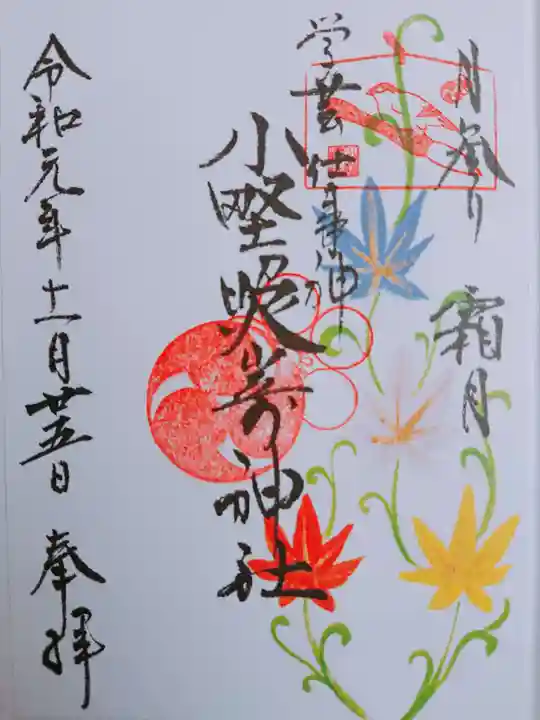 月参り
霜月
学芸仕事の神
小野照崎神社
令和元年十一月廿五日 奉拝